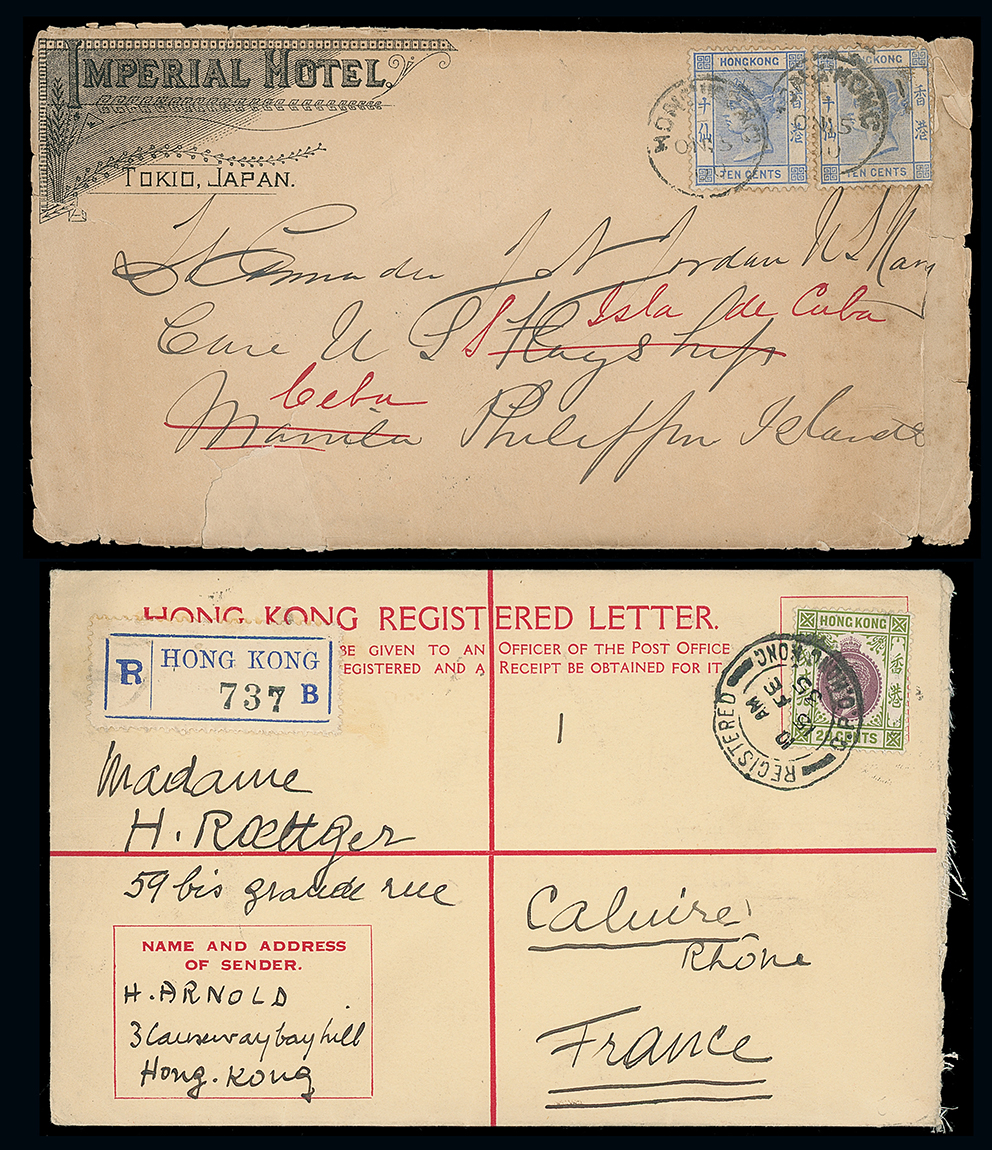 IMPERIAL HOTEL.
TOKIO, JAPAN.
HONGKONG
香港
TEN CENTS
HONGKONG
香港
TEN CENTS
HONG KONG
Lt Comander J N Jordan U S Navy
Isla de Cuba
Care U S S Flagship
Cebu
Manila Philippin Islands
HONG KONG REGISTERED LETTER.
BE GIVEN TO AN OFFICER OF THE POST OFFICE
REGISTERED AND A RECEIPT BE OBTAINED FOR IT
R HONG KONG
737 B
HONG KONG
香港
20 CENTS
REGISTERED
G.P.O. HONG KONG
10 AM
FE
35
1
Madame
H. Rœttger
59 bis grande rue
Caluire
Rhône
France
NAME AND ADDRESS
OF SENDER.
H. ARNOLD
3 Causeway bay hill
Hong-Kong